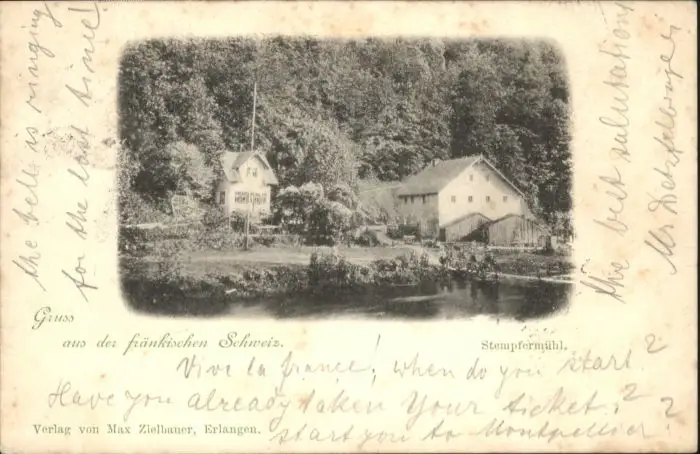 the belle is ringing
for the last time!
the best salutations
Mr
Gruss
aus der fränkischen Schweiz.
Stempfermühl.
Vive la france! when do you start?
Have you already taken Your ticket?
Verlag von Max Zielbauer, Erlangen.
start you to Montpellier??